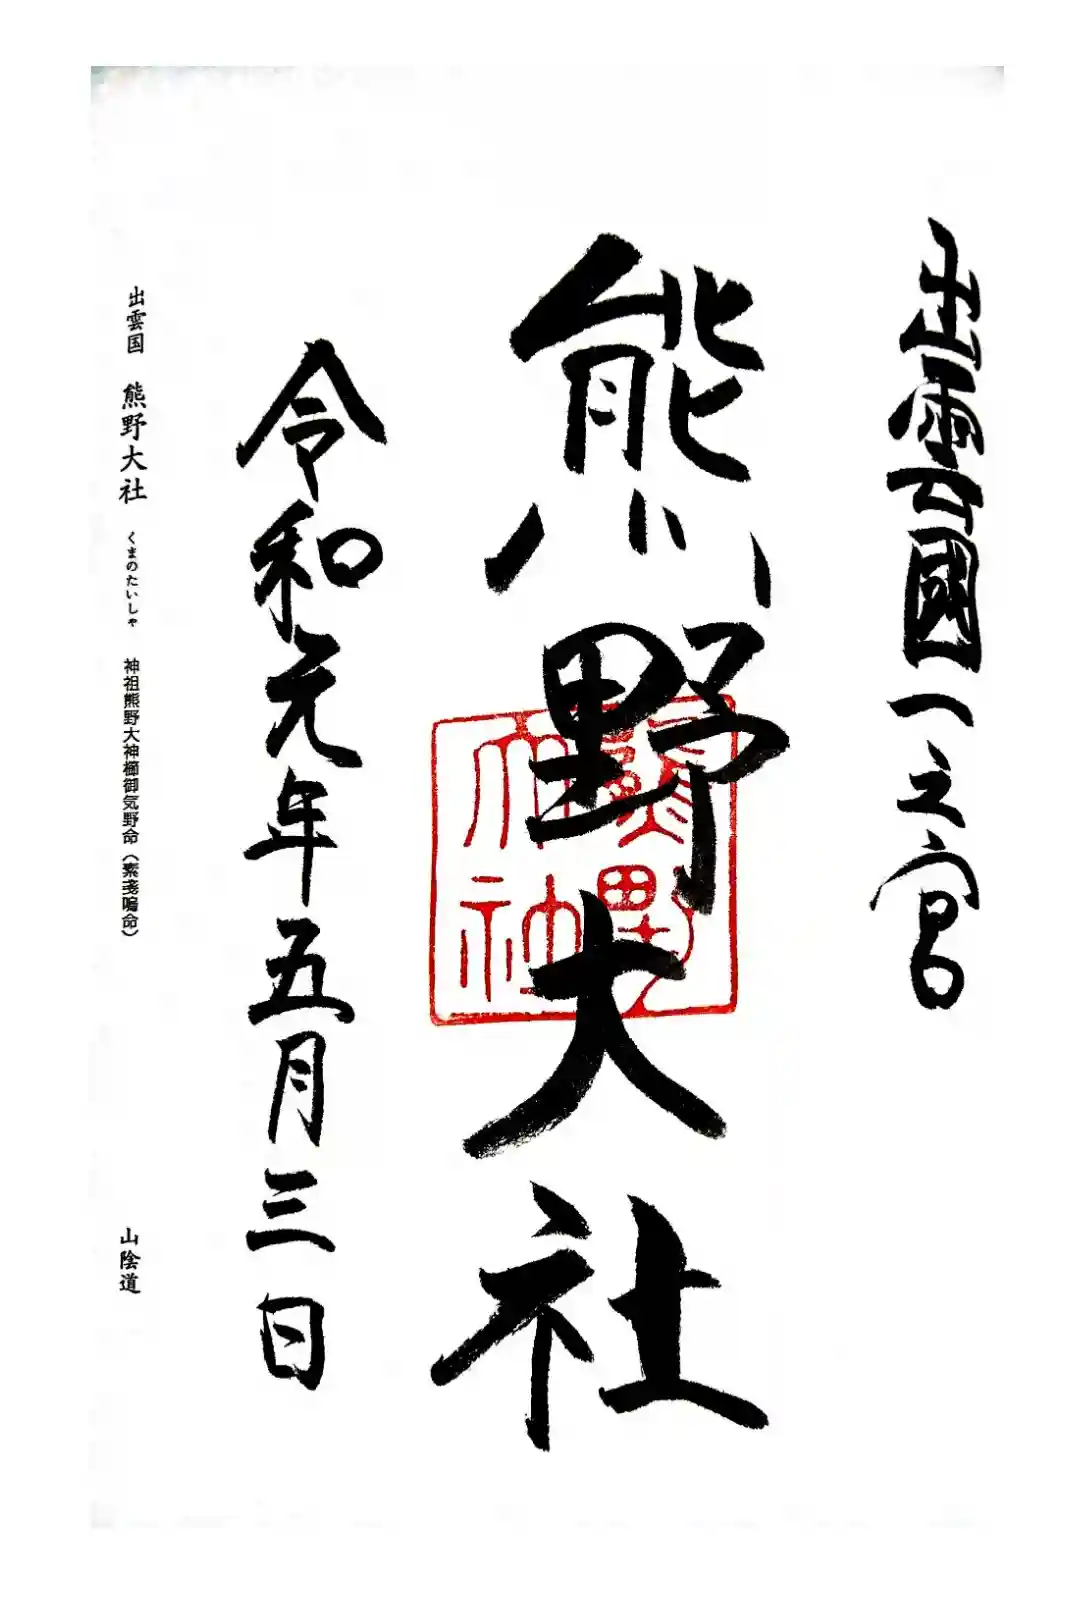 出雲國一之宮
熊野大社
熊野大社
令和元年五月三日
出雲国 熊野大社 くまのたいしゃ 神祖熊野大神櫛御気野命（素戔嗚命） 山陰道